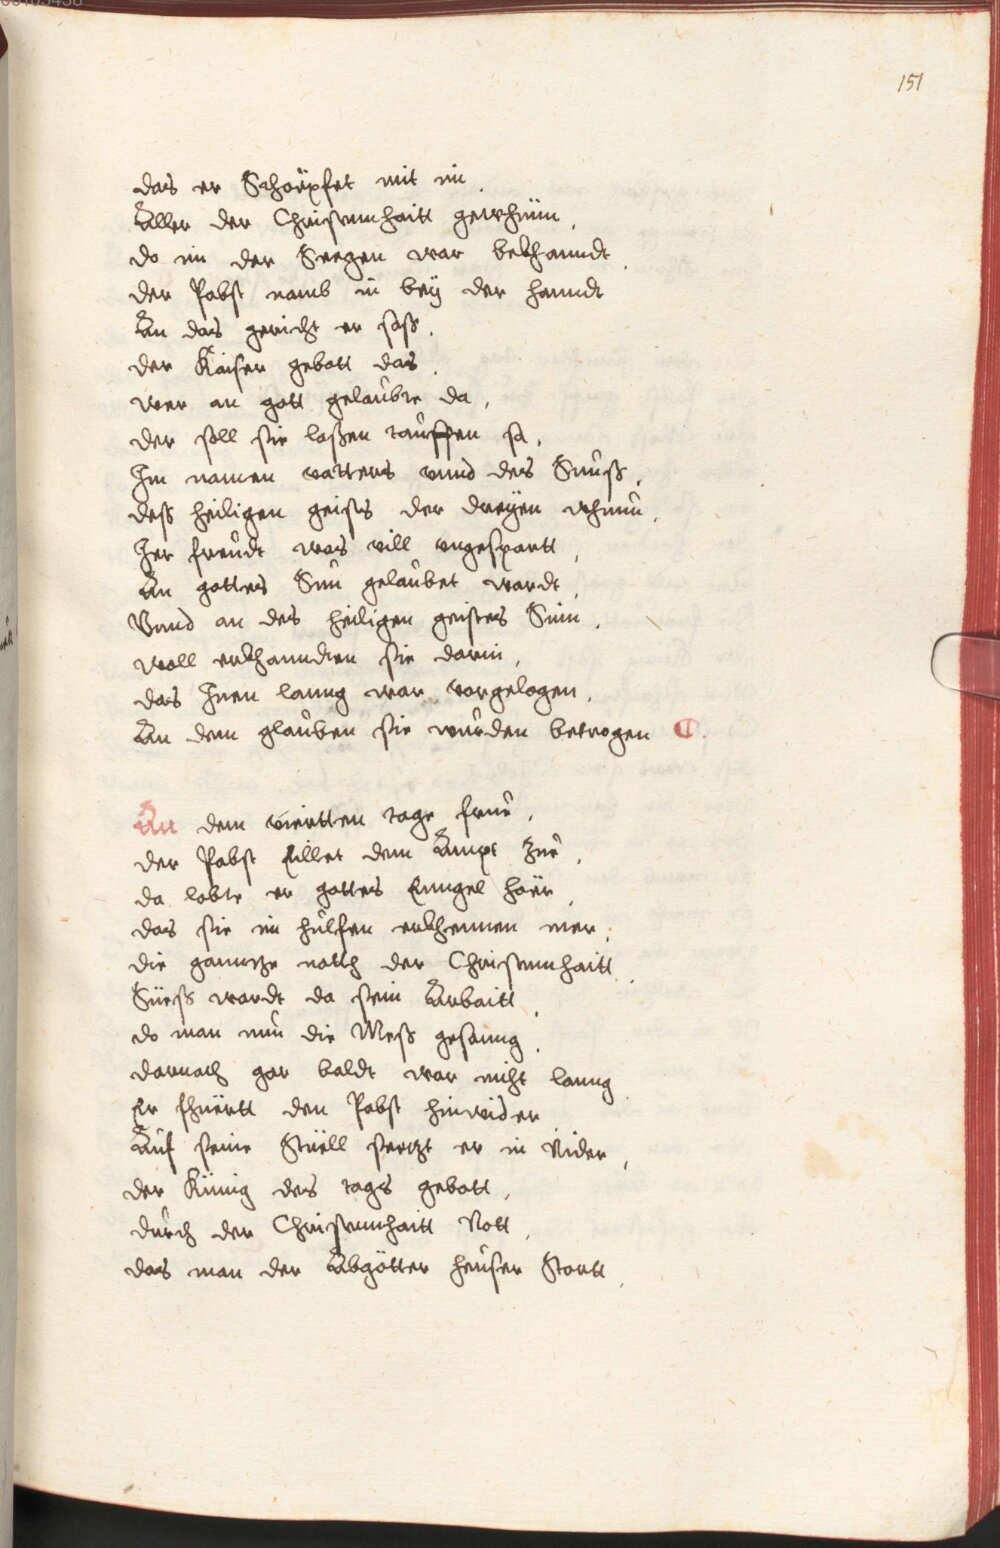 151
das er Schöpfet mit im.
Aller der Christennhaitt gewhün,
do im der Seegen war bekhanndt.
der Pabst namb in bey der hanndt
An das gericht er saß.
der Kaiser gebott das.
wer an gott gelaubte da,
der soll sie laßen tauffen sa,
Im namen vatters vnnd des Sunß,
deß heiligen geists der dreyen
Jer freudt was vill vngespartt,
An gottes Sun gelaubet wardt,
Vnnd an des heiligen geistes Sinn.
woll erkhanndten sie darin,
das Inen lanng war vorgelogen.
An dem glauben sie wurden betrogen
An dem viertten tage frue,
der Pabst Eillet dem Ampt Zue,
da lobte er gottes Enngel hör,
das sie im hülfen erkhennen mer,
die ganntze notth der Christennhaitt,
Süeß wardt da sein Arbaitt,
do man nun die Meß gesanng.
darnach gar baldt war nicht lanng
Er fhüertt den Pabst hinwider
Auf seine Stüell setzt er in Nider,
der Künig des tags gebott,
durch der Christennhaitt Nott,
das man der Abgötter heuser Stortt,